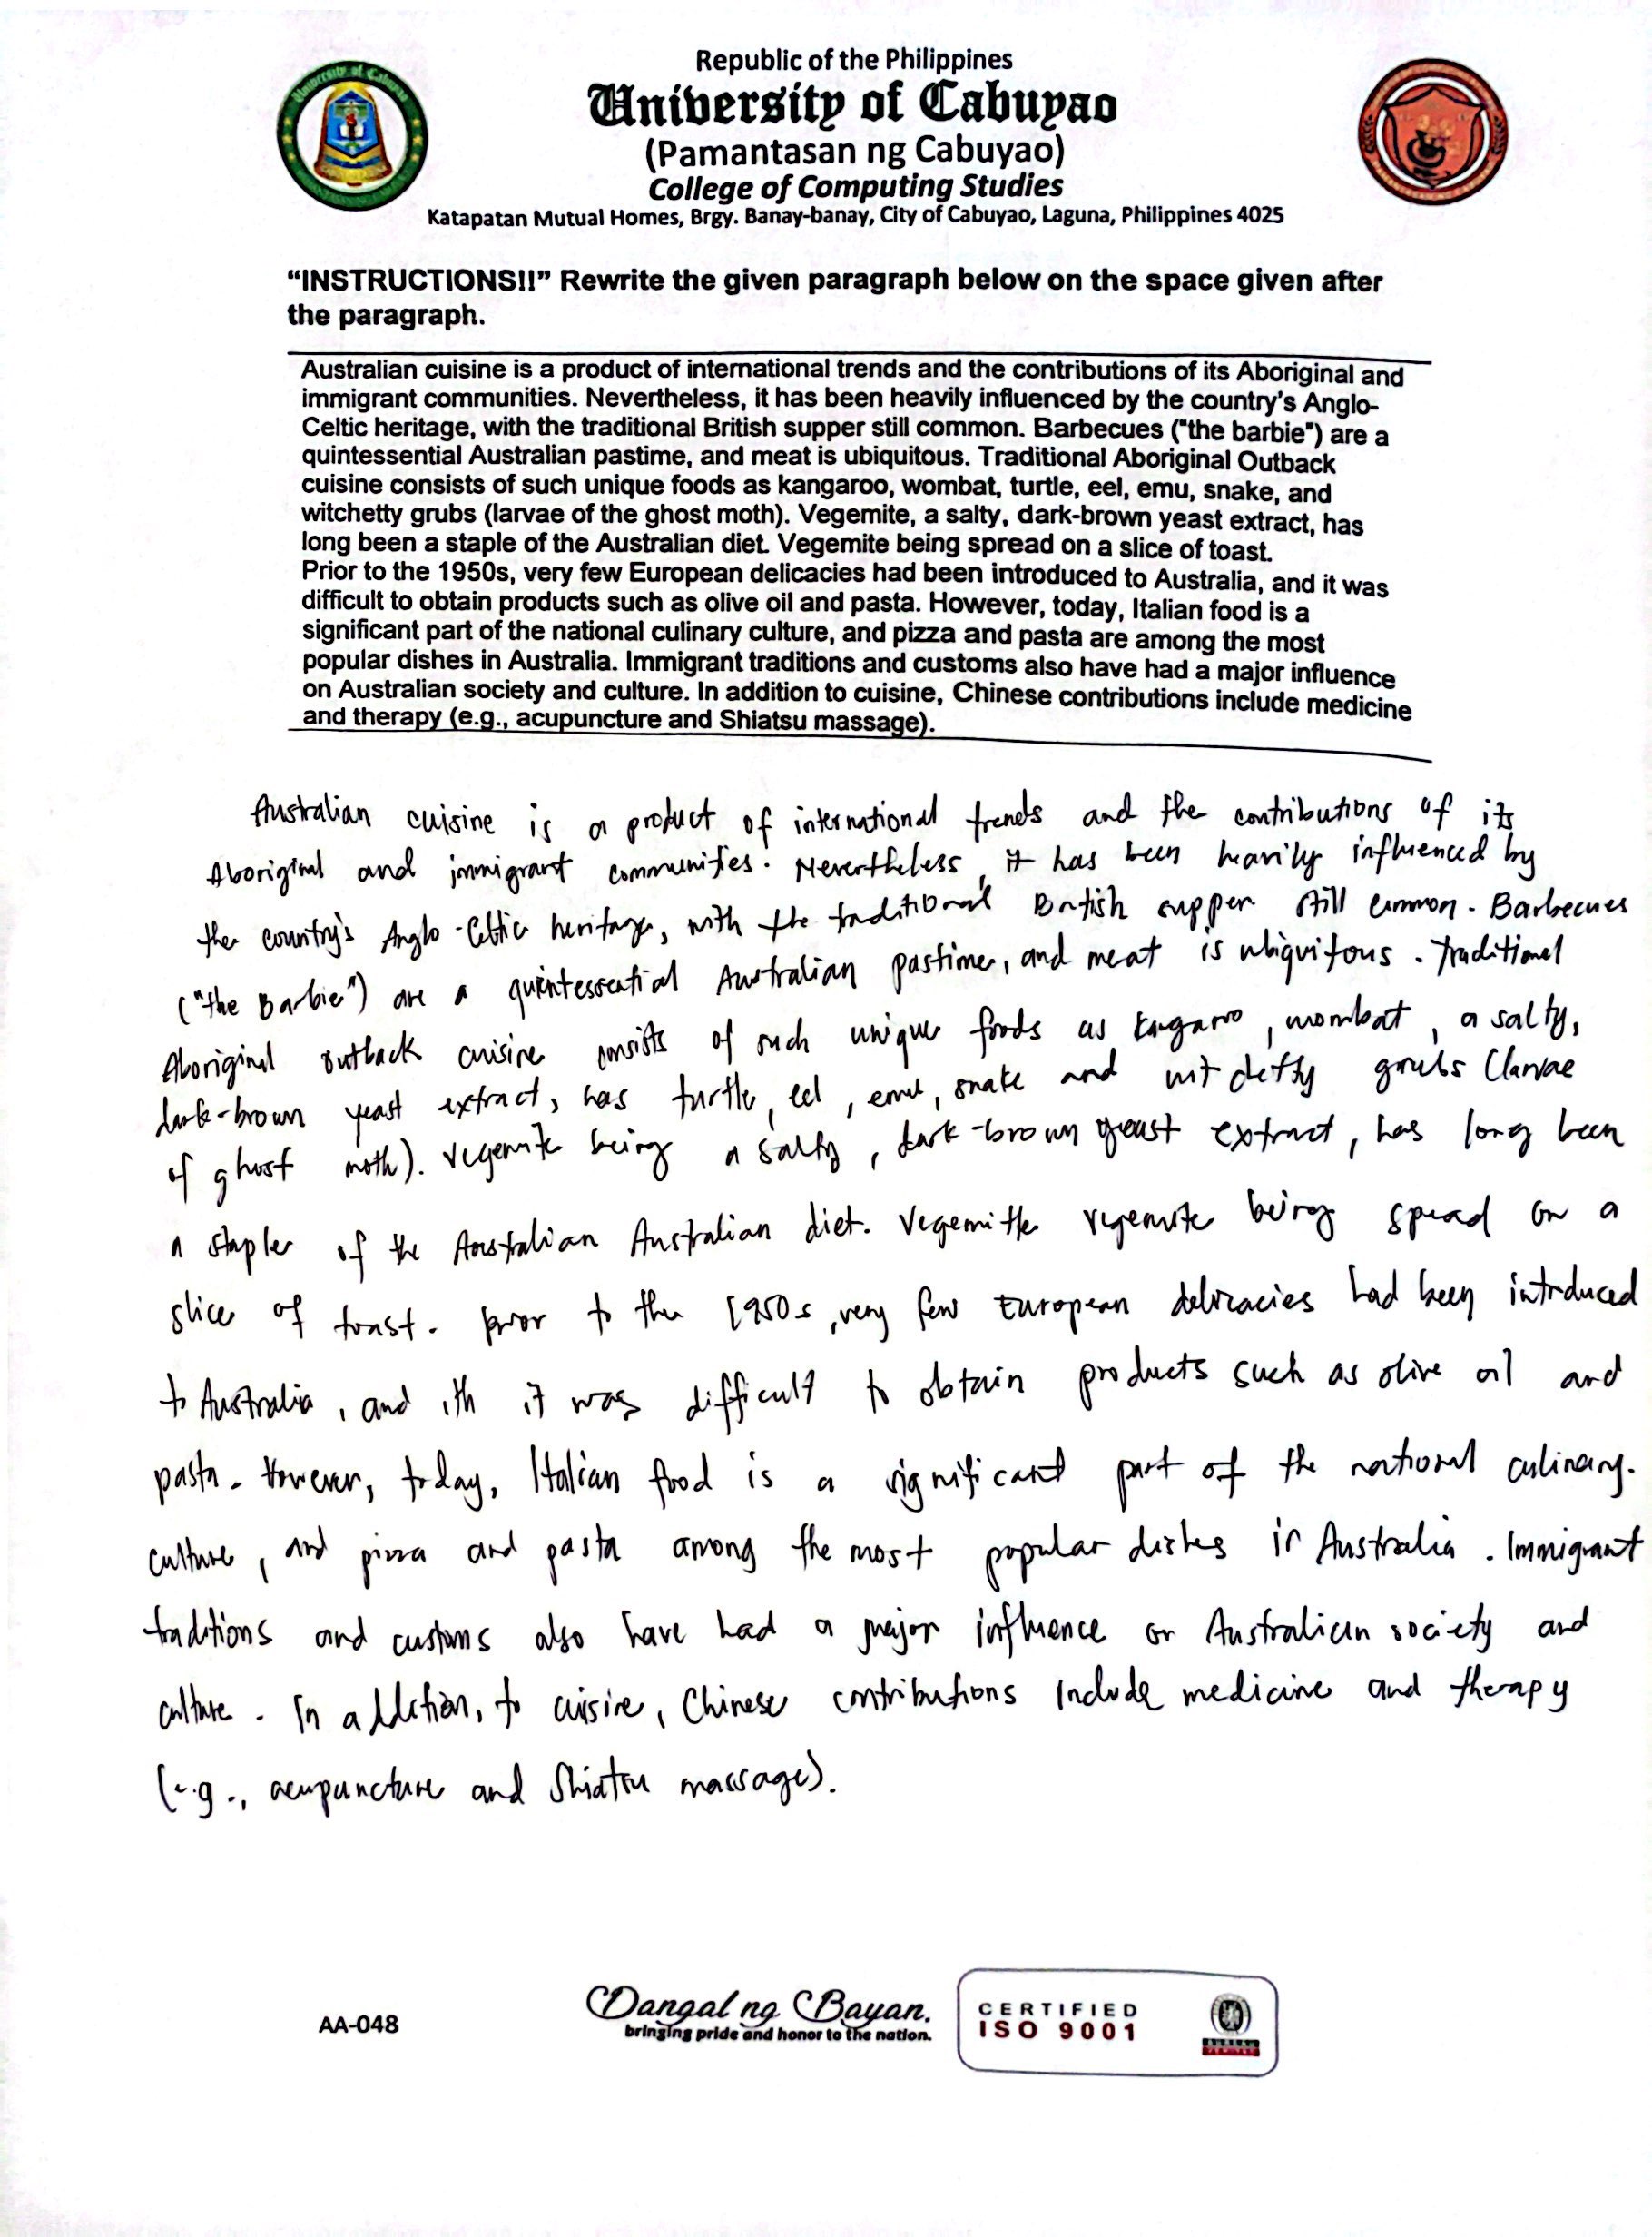 Republic of the Philippines
University of Cabuyao
(Pamantasan ng Cabuyao)
College of Computing Studies
Katapatan Mutual Homes, Brgy. Banay-banay, City of Cabuyao, Laguna, Philippines 4025
"INSTRUCTIONS!!" Rewrite the given paragraph below on the space given after
the paragraph.
Australian cuisine is a product of international trends and the contributions of its Aboriginal and
immigrant communities. Nevertheless, it has been heavily influenced by the country's Anglo-
Celtic heritage, with the traditional British supper still common. Barbecues ("the barbie") are a
quintessential Australian pastime, and meat is ubiquitous. Traditional Aboriginal Outback
cuisine consists of such unique foods as kangaroo, wombat, turtle, eel, emu, snake, and
witchetty grubs (larvae of the ghost moth). Vegemite, a salty, dark-brown yeast extract, has
long been a staple of the Australian diet. Vegemite being spread on a slice of toast.
Prior to the 1950s, very few European delicacies had been introduced to Australia, and it was
difficult to obtain products such as olive oil and pasta. However, today, Italian food is a
significant part of the national culinary culture, and pizza and pasta are among the most
popular dishes in Australia. Immigrant traditions and customs also have had a major influence
on Australian society and culture. In addition to cuisine, Chinese contributions include medicine
and therapy (e.g., acupuncture and Shiatsu massage).
Australian cuisine is a product of international trends and the contributions of its
Aboriginal and immigrant communities. Nevertheless, it has been heavily influenced by
the country's Anglo-Celtic heritage, with the traditional British supper still common. Barbecues
("the Barbie") are a quintessential Australian pastime, and meat is ubiquitous. Traditional
Aboriginal outback cuisine consists of such unique foods as kangaroo, wombat, a salty,
dark-brown yeast extract, has turtle, eel, emu, snake and witchetty grubs (larvae
of ghost moth). Vegemite being a salty, dark-brown yeast extract, has long been
a staple of the Australian Australian diet. Vegemitte vegemite being spread on a
slice of toast. Prior to the 1950s, very few European delicacies had been introduced
to Australia, and ith it was difficult to obtain products such as olive oil and
pasta. However, today, Italian food is a significant part of the national culinary.
culture, and pizza and pasta among the most popular dishes in Australia. Immigrant
traditions and customs also have had a major influence on Australian society and
culture. In addition, to cuisine, Chinese contributions Include medicine and therapy
(e.g., acupuncture and Shiatsu massage).
AA-048
Dangal ng Bayan.
bringing pride and honor to the nation.
CERTIFIED
ISO 9001